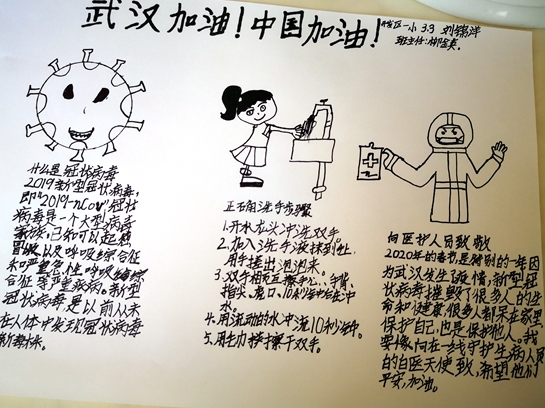 武汉加油！中国加油！
一小 3.3 刘锦洋
班主任：柳
什么是冠状病毒
2019新型冠状病毒，
即"2019-nCoV"冠状
病毒是一个大型病毒
家族，已知可以起
冒以及呼吸综合征
和严重急性呼吸综
合征等严重疾病。新型
冠状病毒是以前从未
在人体中发现冠状病毒
新毒株。
正确洗手步骤
1.开水龙头冲洗双手。
2.加入洗手液抹到，
用手搓出泡泡来。
3.双手相互擦手心、手背、
指尖、虎口、10秒
水。
4.用流动的水冲流10秒钟。
5.用毛巾擦干双手。
向医护人员致敬
2020年的春节，是特别的一年因
为武汉发生了疫情，新型冠
状病毒摧毁了很多人的生
命和健康，很多人都呆在家里，
保护自己，也是保护他人。我
要像向在一线守护生病人员
的白医天使致，希望他们
平安，加油。